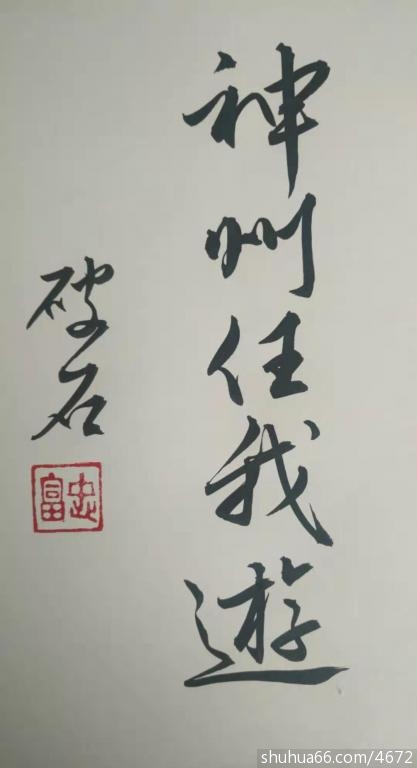 神州任我遊
破石
忠富
shuhua66.com/4672